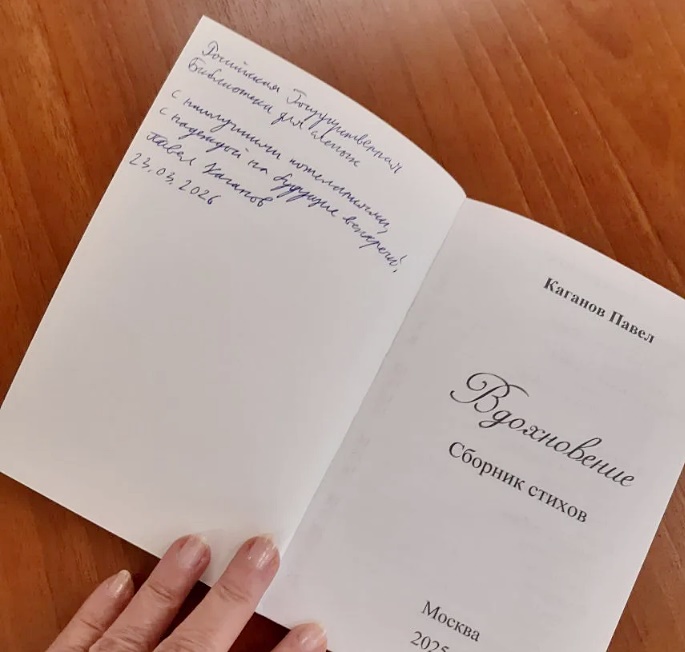 Российская Государственная
Библиотека для слепых
с наилучшими пожеланиями,
с надеждой на будущие встречи!
Павел Каганов
23.03.2026
Каганов Павел
Вдохновение
Сборник стихов
Москва
2025